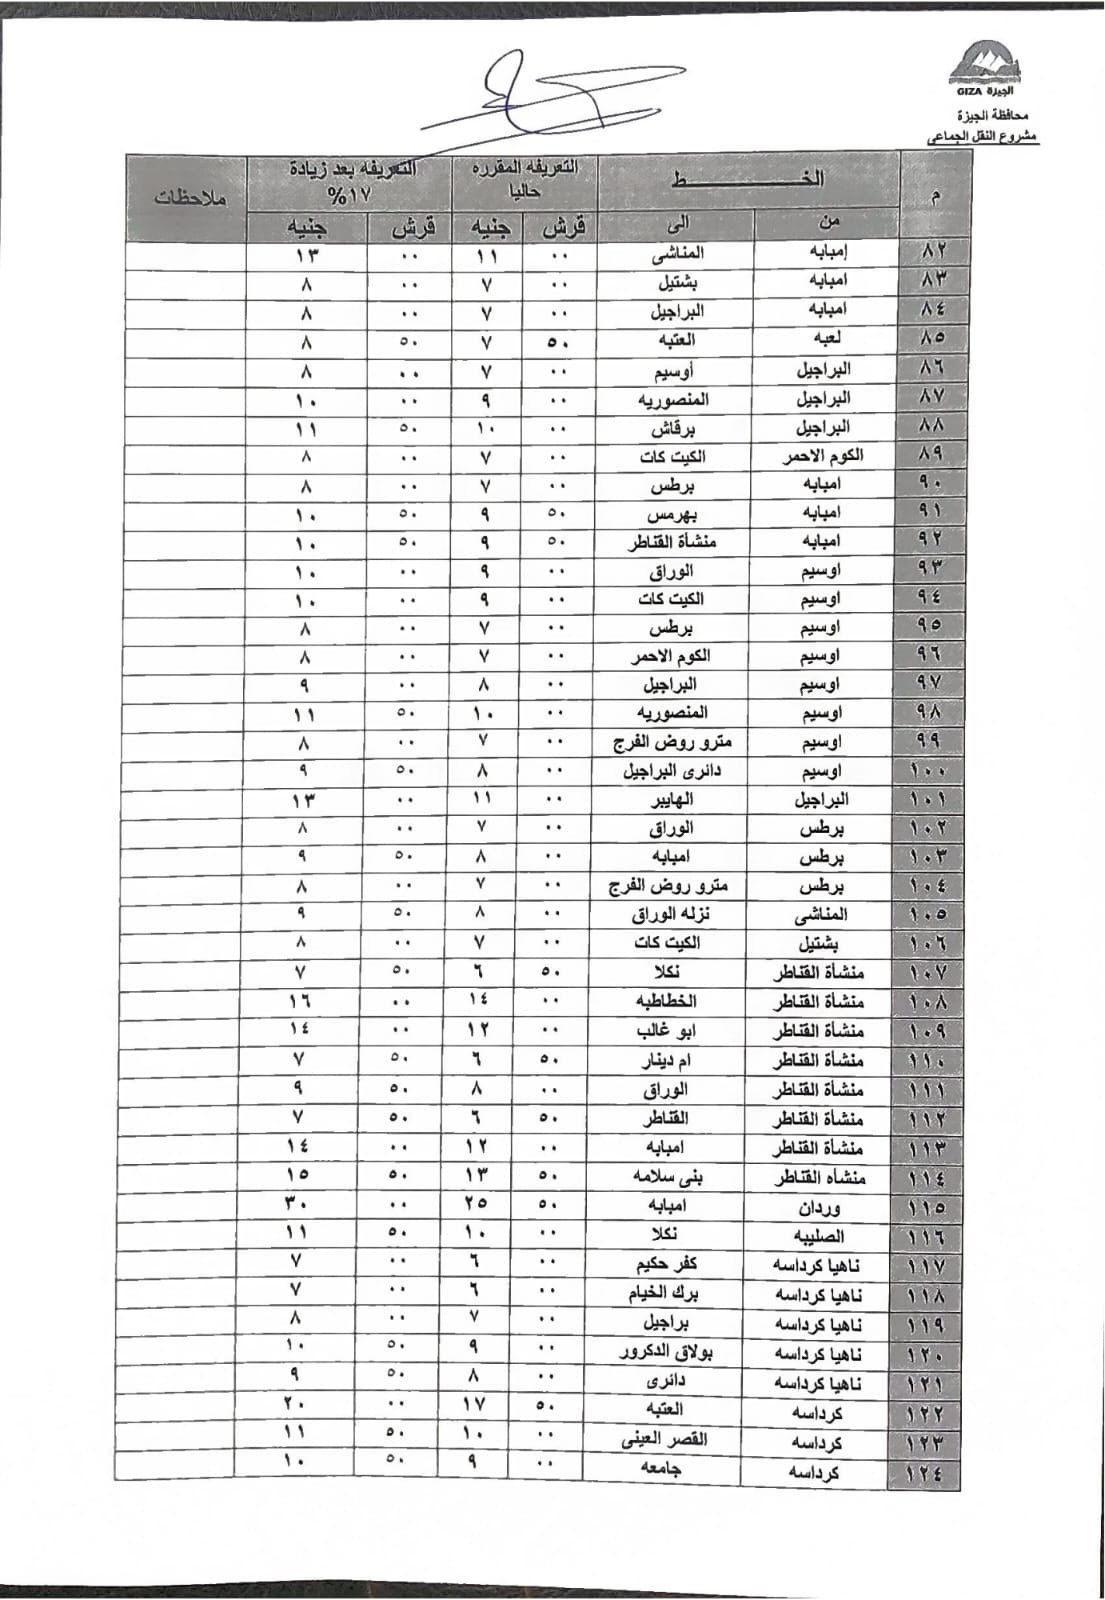 الجيزة GIZA
محافظة الجيزة
مشروع النقل الجماعى
م الخـــط التعريفه المقرره حاليا التعريفه بعد زيادة ١٧% ملاحظات
من الى قرش جنيه قرش جنيه
٨٢ إمبابه المناشى ٠٠ ١١ ٠٠ ١٣
٨٣ امبابه بشتيل ٠٠ ٧ ٠٠ ٨
٨٤ امبابه البراجيل ٠٠ ٧ ٠٠ ٨
٨٥ لعبه العتبه ٥٠ ٧ ٥٠ ٨
٨٦ البراجيل أوسيم ٠٠ ٧ ٠٠ ٨
٨٧ البراجيل المنصوريه ٠٠ ٩ ٠٠ ١٠
٨٨ البراجيل برقاش ٠٠ ١٠ ٥٠ ١١
٨٩ الكوم الاحمر الكيت كات ٠٠ ٧ ٠٠ ٨
٩٠ امبابه برطس ٠٠ ٧ ٠٠ ٨
٩١ امبابه بهرمس ٥٠ ٩ ٥٠ ١٠
٩٢ امبابه منشأة القناطر ٥٠ ٩ ٥٠ ١٠
٩٣ اوسيم الوراق ٠٠ ٩ ٠٠ ١٠
٩٤ اوسيم الكيت كات ٠٠ ٩ ٠٠ ١٠
٩٥ اوسيم برطس ٠٠ ٧ ٠٠ ٨
٩٦ اوسيم الكوم الاحمر ٠٠ ٧ ٠٠ ٨
٩٧ اوسيم البراجيل ٠٠ ٨ ٠٠ ٩
٩٨ اوسيم المنصوريه ٠٠ ١٠ ٥٠ ١١
٩٩ اوسيم مترو روض الفرج ٠٠ ٧ ٠٠ ٨
١٠٠ اوسيم دائرى البراجيل ٠٠ ٨ ٥٠ ٩
١٠١ البراجيل الهايبر ٠٠ ١١ ٠٠ ١٣
١٠٢ برطس الوراق ٠٠ ٧ ٠٠ ٨
١٠٣ برطس امبابه ٠٠ ٨ ٥٠ ٩
١٠٤ برطس مترو روض الفرج ٠٠ ٧ ٠٠ ٨
١٠٥ المناشى نزله الوراق ٠٠ ٨ ٥٠ ٩
١٠٦ بشتيل الكيت كات ٠٠ ٧ ٠٠ ٨
١٠٧ منشأة القناطر نكلا ٥٠ ٦ ٥٠ ٧
١٠٨ منشأة القناطر الخطاطبه ٠٠ ١٤ ٠٠ ١٦
١٠٩ منشأة القناطر ابو غالب ٠٠ ١٢ ٠٠ ١٤
١١٠ منشأة القناطر ام دينار ٥٠ ٦ ٥٠ ٧
١١١ منشأة القناطر الوراق ٠٠ ٨ ٥٠ ٩
١١٢ منشأة القناطر القناطر ٥٠ ٦ ٥٠ ٧
١١٣ منشأة القناطر امبابه ٠٠ ١٢ ٠٠ ١٤
١١٤ منشأه القناطر بنى سلامه ٥٠ ١٣ ٥٠ ١٥
١١٥ وردان امبابه ٥٠ ٢٥ ٠٠ ٣٠
١١٦ الصليبه نكلا ٠٠ ١٠ ٥٠ ١١
١١٧ ناهيا كرداسه كفر حكيم ٠٠ ٦ ٠٠ ٧
١١٨ ناهيا كرداسه برك الخيام ٠٠ ٦ ٠٠ ٧
١١٩ ناهيا كرداسه براجيل ٠٠ ٧ ٠٠ ٨
١٢٠ ناهيا كرداسه بولاق الدكرور ٠٠ ٩ ٥٠ ١٠
١٢١ ناهيا كرداسه دائرى ٠٠ ٨ ٥٠ ٩
١٢٢ كرداسه العتبه ٥٠ ١٧ ٠٠ ٢٠
١٢٣ كرداسه القصر العينى ٠٠ ١٠ ٥٠ ١١
١٢٤ كرداسه جامعه ٠٠ ٩ ٥٠ ١٠